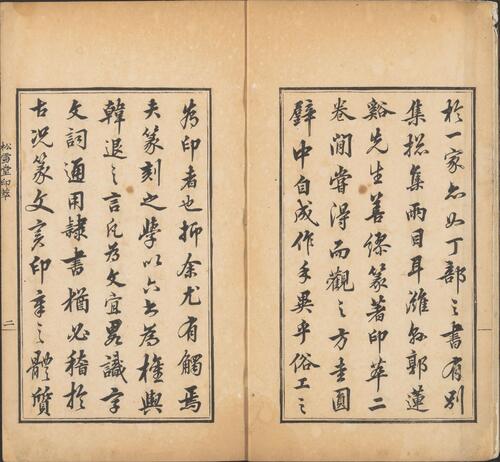 於一家亦如丁部之書有別
集揔集兩目耳濰縣郭蓮
谿先生善繆篆著印萃二
卷閒嘗得而觀之方圭圓
璧中自成作手異乎俗工之
一
為印者也抑余尤有觸焉
夫篆刻之學以六書為權輿
韓退之言凡為文宜畧識字
文詞通用隸書猶必稽於
古況篆文實印章之體質
松雪堂印萃
二